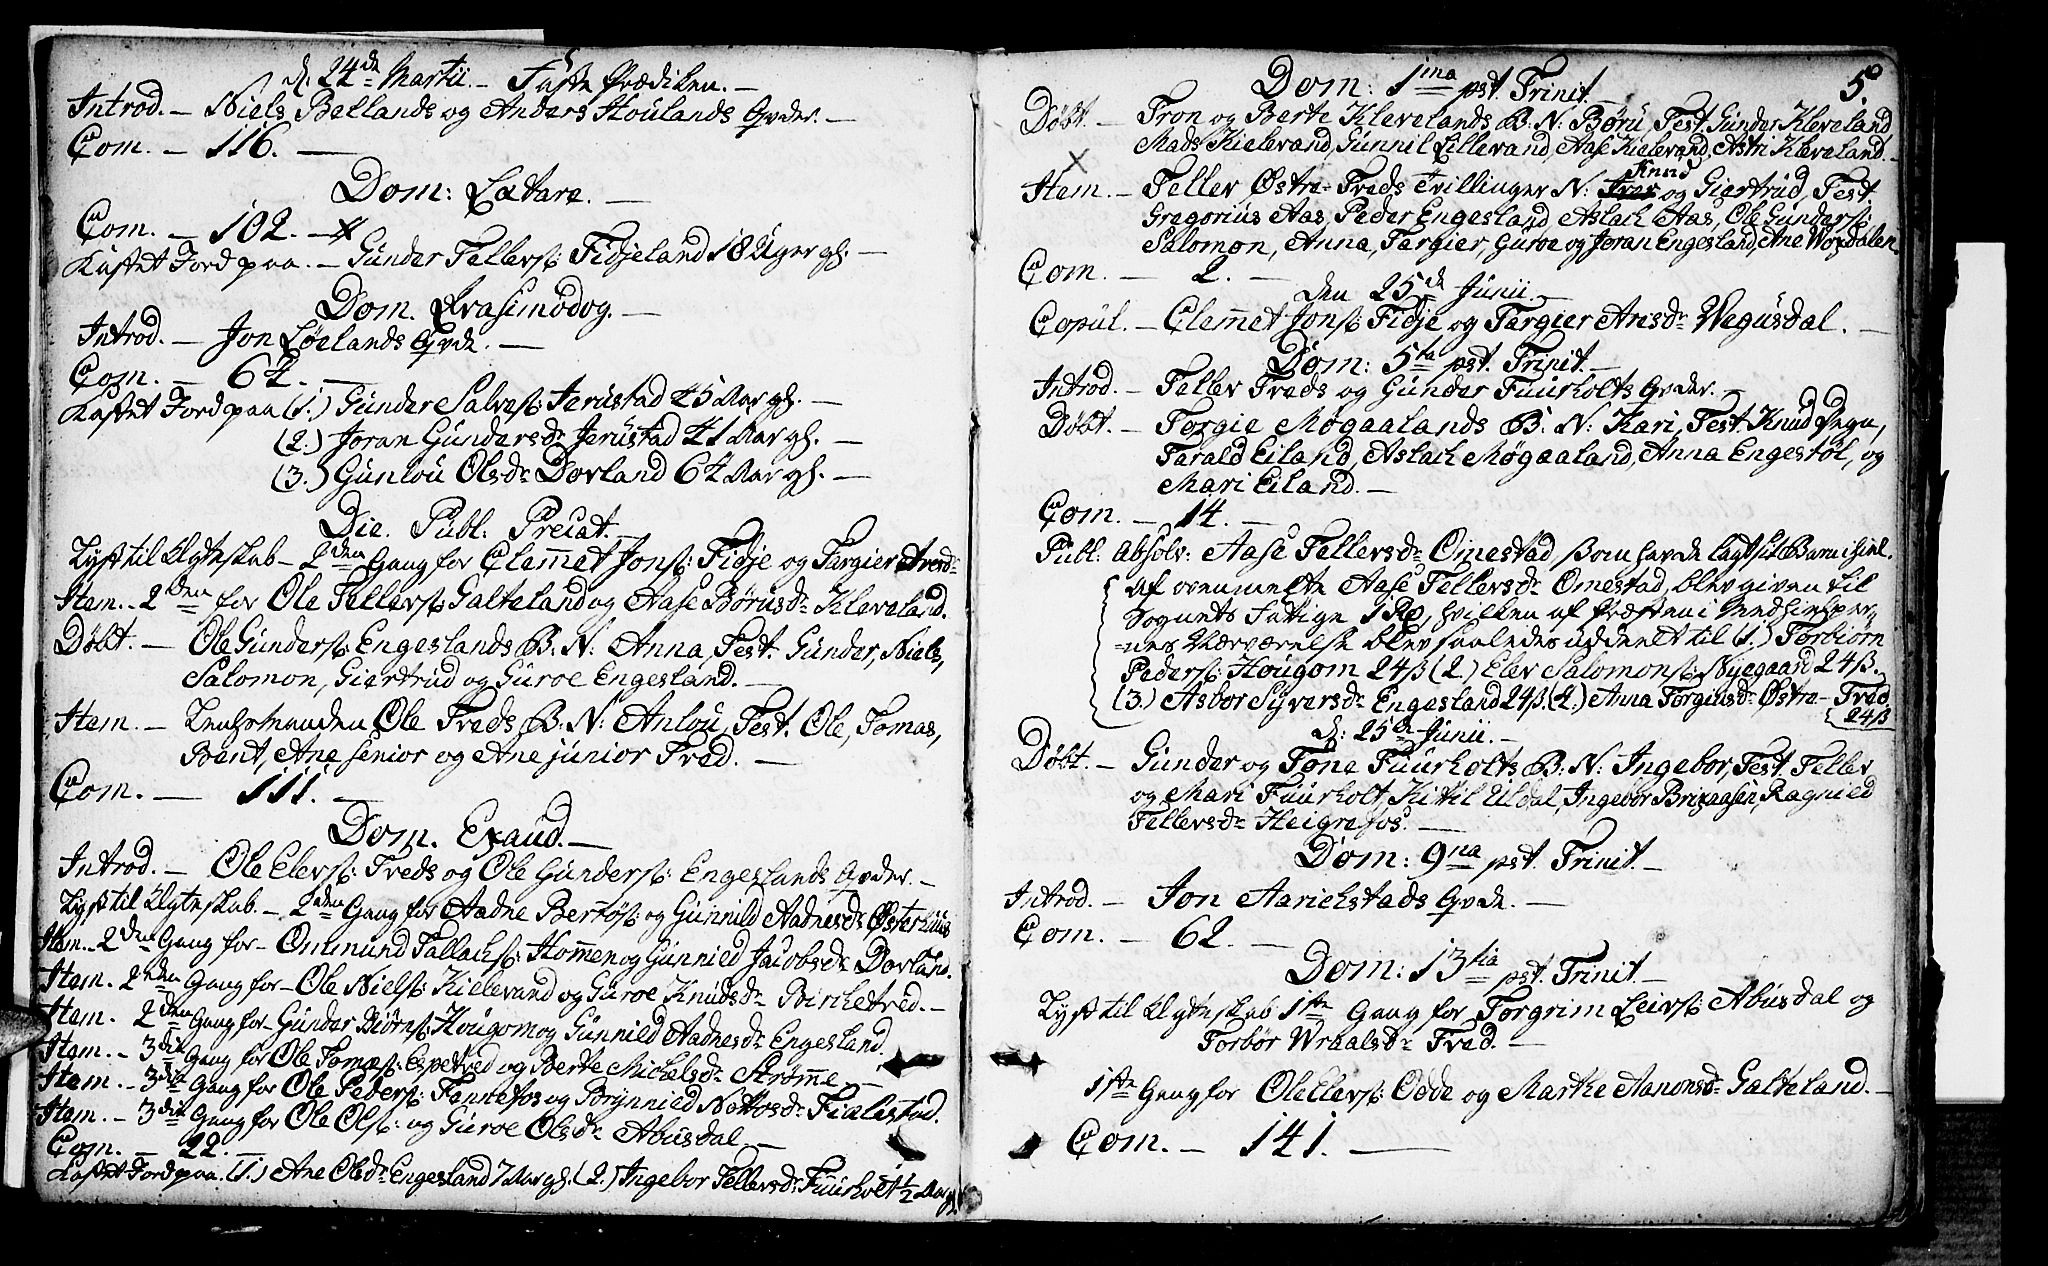 d. 24de Martii. – Faste Prædiken. –
Introd. – Niels Bellands og Anders Houlands Qvder. –
Com. – 116. –
Dom: Lætare. –
Com. – 102. –
Kastet Jord paa. – Gunder Tellers: Fidjeland 18 Uger gl. –
Dom. Qvasimodog. –
Introd. – Jon Løelands Qvde. –
Com. – 64. –
Kastet Jord paa (1.) Gunder Salves: Jerustad 45 Aar gl. –
(2.) Joran Gundersdr Jerustad 41 Aar gl. –
(3.) Gunlou Olsdr Dovland 64 Aar gl. –
Die. Publ: Precat. –
Lyst til Ægteskab – 2den Gang for Clemmet Jons: Fidje og Targier Aresdr
Item. – 2den for Ole Tellers: Galteland og Aase Børusdr Kleveland.
Døbt. – Ole Gunders: Engeslands B: N: Anna, Test. Gunder, Niels,
Salomon, Giertrud og Guroe Engesland. –
Item. – Lensmanden Ole Treds B: N: Anlou, Test. Ole, Tomas,
Bent, Ane senior og Ane junior Tred. –
Com. – 111. –
Dom. Exaud. –
Introd. – Ole Elevs: Treds og Ole Gunders: Engeslands Qvder. –
Lyst til Ægteskab. – 2den Gang for Aadne Berros: og Gunnild Aadnesdr Østerhuus
Item. – 2den Gang for – Ommund Tallachs: Hommen og Gunnied Jacobsdr Dovland.
Item. 2den Gang for – Ole Niels: Killevand og Guroe Knudsdr Birchetved. –
Item. 2den Gang for – Gunder Biørns: Hougom og Gunnied Aadnesdr Engesland.
Item. – 3die Gang for Ole Tomæs: Espetved og Berte Michelsdr Strømme –
Item. – 3die Gang for Ole Peders: Fannefos og Brynnied Nottosdr Fialestad.
Item. – 3die Gang for Ole Ols: og Guroe Olsdr Abusdal –
Com. – 22. –
Kastet Jord paa. (1.) Ane Olsdr Engesland 7 Aar gl. (2.) Ingebor Tellersdr Fuurholt 1/2 Aar gl.
5.
Dom: 1ma pst. Trinit. –
Døbt. – Tron og Berte Klevelands B: N: Børu, Test. Gunder Kleveland
Mads Kielevand, Gunnil Lillevand, Aase Kielevand, Astri Kleveland. –
Knud
Item. – Teller Østre-Treds Tvillinger N: Iver og Giertrud, Test
Gregorius Aas, Peder Engesland, Aslach Aas, Ole Gunders:
Salomon, Anna, Targier, Guroe og Joran Engesland, Ane Woxdalen.
Com. – 2. –
den 25de Junii. –
Copul. – Clemmet Jons: Fidje og Targier Aresdr Wegusdal. –
Dom: 5ta pst. Trinit. –
Introd. – Teller Treds og Gunder Fuurholts Qvder. –
Døbt. – Torgie Møgaalands B: N: Kari, Test. Knud Degn,
Tarald Eiland, Aslach Møgaaland, Anna Engestøl, og
Mari Eiland. –
Com. – 14. –
Publ: Absolv: Aase Tellersdr Omestad, som havde lagt sit Barn ihiel.
af ovenmelte Aase Tellersdr Omestad, blev given til
Sognets Fattige 1 Rd, hvilken af Præsten i Medhielper-
=nes Nærværelse blev saaledes uddeelt til (1.) Torbiørn
Peders: Hougom 24ß (2.) Elev Salomons: Nyegaard 24ß.
(3.) Asbor Syversdr Engesland 24ß. (4.) Anna Torginsdr Østre-Tred
24ß
d: 25de Junii. –
Døbt. – Gunder og Tone Fuurholts B: N: Ingebor, Test. Teller
og Mari Fuurholt, Kitil Uldal, Ingebor Brixaasen, Ragnied
Tellersdr Heigrefos. –
Dom: 9na pst. Trinit. –
Introd. – Jon Aarichstads Qvde. –
Com. – 62. –
Dom: 13tia pst. Trinit. –
Lyst til Ægteskab 1ste Gang for Torgrim Leivs: Abusdal og
Torbør Wraalsdr Tred. –
1ste Gang for Ole Elles: Odde og Marthe Aanonsdr Galteland. –
Com. – 141. –